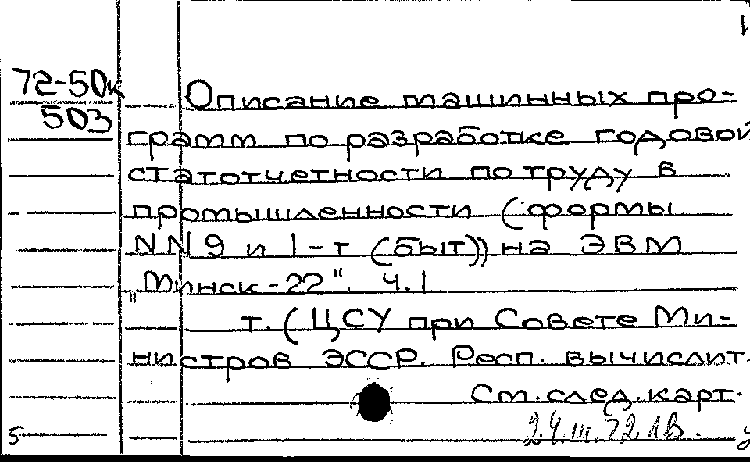 72-50к
503
Описание машинных про-
грамм по разработке годовой
статотчетности по труду в
промышленности (формы
NN 9 и 1-т (быт)) на ЭВМ
"Минск-22". Ч.1
т. (ЦСУ при Совете Ми-
нистров ЭССР. Респ. вычислит.
См. след. карт.
24.III.72
5